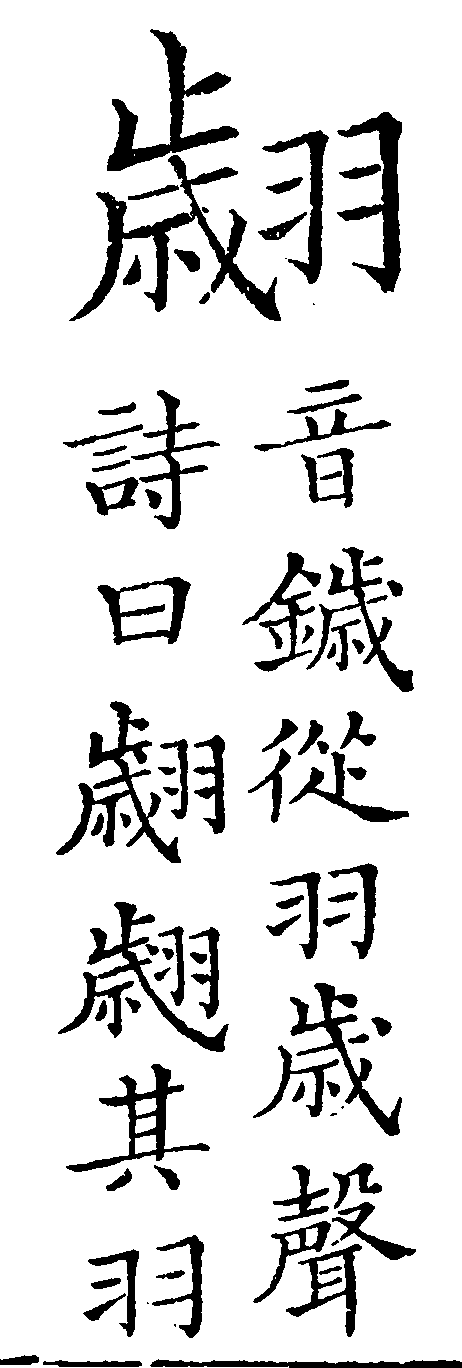 翽
音鐬從羽歲聲
詩曰翽翽其羽